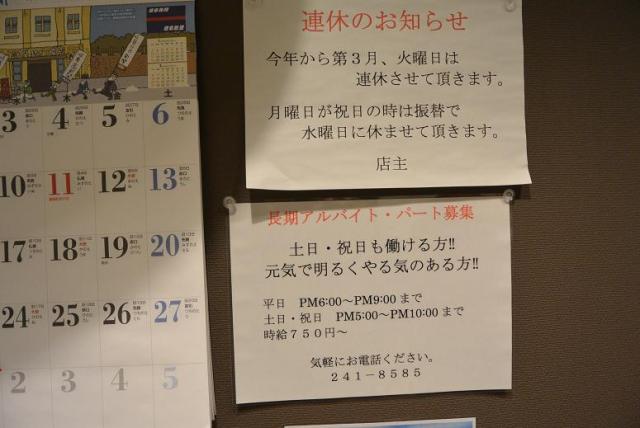 連休のお知らせ
今年から第３月、火曜日は
連休させて頂きます。
月曜日が祝日の時は振替で
水曜日に休ませて頂きます。
店主
長期アルバイト・パート募集
土日・祝日も働ける方!!
元気で明るくやる気のある方!!
平日 PM6:00～PM9:00 まで
土日・祝日 PM5:00～PM10:00 まで
時給７５０円～
気軽にお電話ください。
２４１－８５８５
木 金 土
3 4 5 6
10 11 12 13
17 18 19 20
24 25 26 27
2 3 4 5